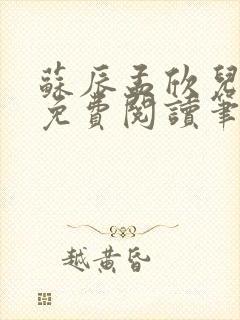 蘇辰孟欣兒
免費閱讀筆
越黃昏